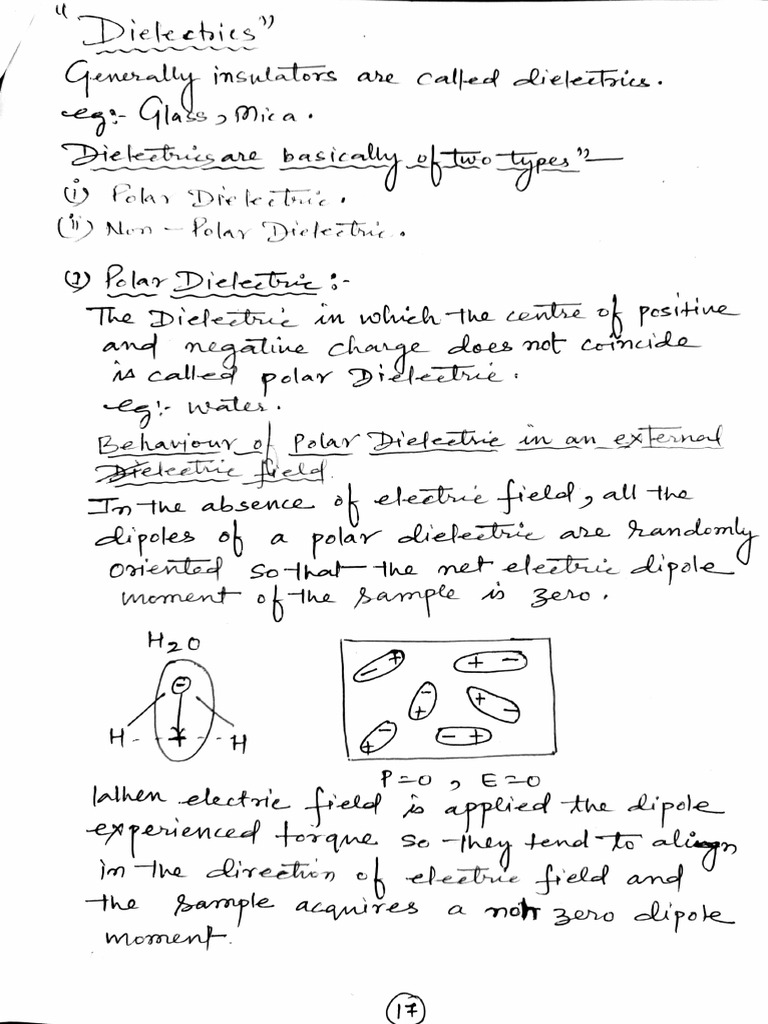 "Dielectrics"
Generally insulators are called dielectrics.
eg:- Glass, Mica.
Dielectrics are basically of two types"—
(i) Polar Dielectric.
(ii) Non-Polar Dielectric.
(1) Polar Dielectric:-
The Dielectric in which the centre of positive
and negative charge does not coincide
is called polar Dielectric.
eg:- water.
Behaviour of Polar Dielectric in an external
Dielectric field.
In the absence of electric field, all the
dipoles of a polar dielectric are randomly
oriented so that the net electric dipole
moment of the sample is zero.
H2O
- + + -
- - +
+ -
H - + - H
- +
+ - +
P=0, E=0
When electric field is applied the dipole
experienced torque so they tend to align
in the direction of electric field and
the sample acquires a non zero dipole
moment.
17